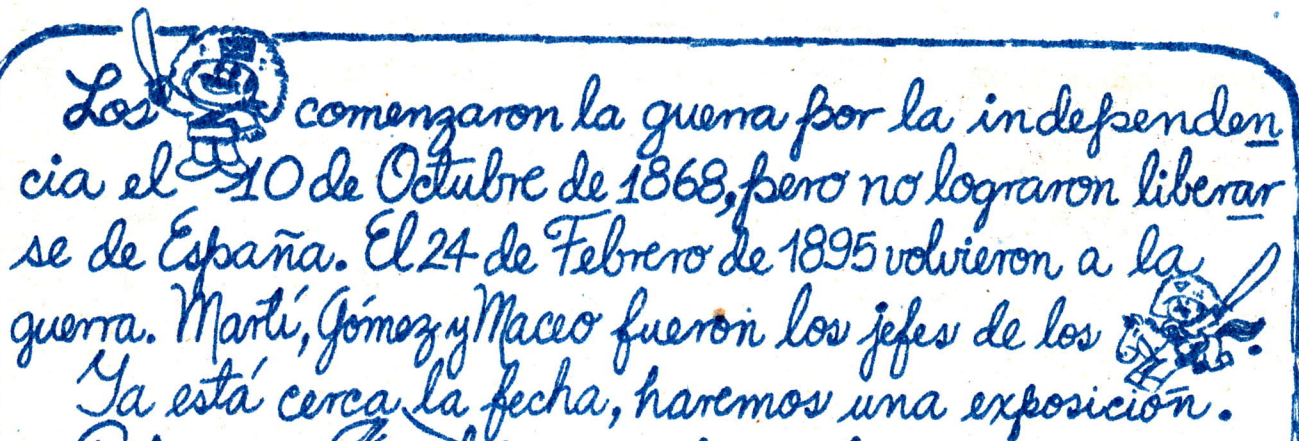 Los comenzaron la guerra por la independen
cia el 10 de Octubre de 1868, pero no lograron liberar
se de España. El 24 de Febrero de 1895 volvieron a la
guerra. Martí, Gómez y Maceo fueron los jefes de los .
Ya está cerca la fecha, haremos una exposición.